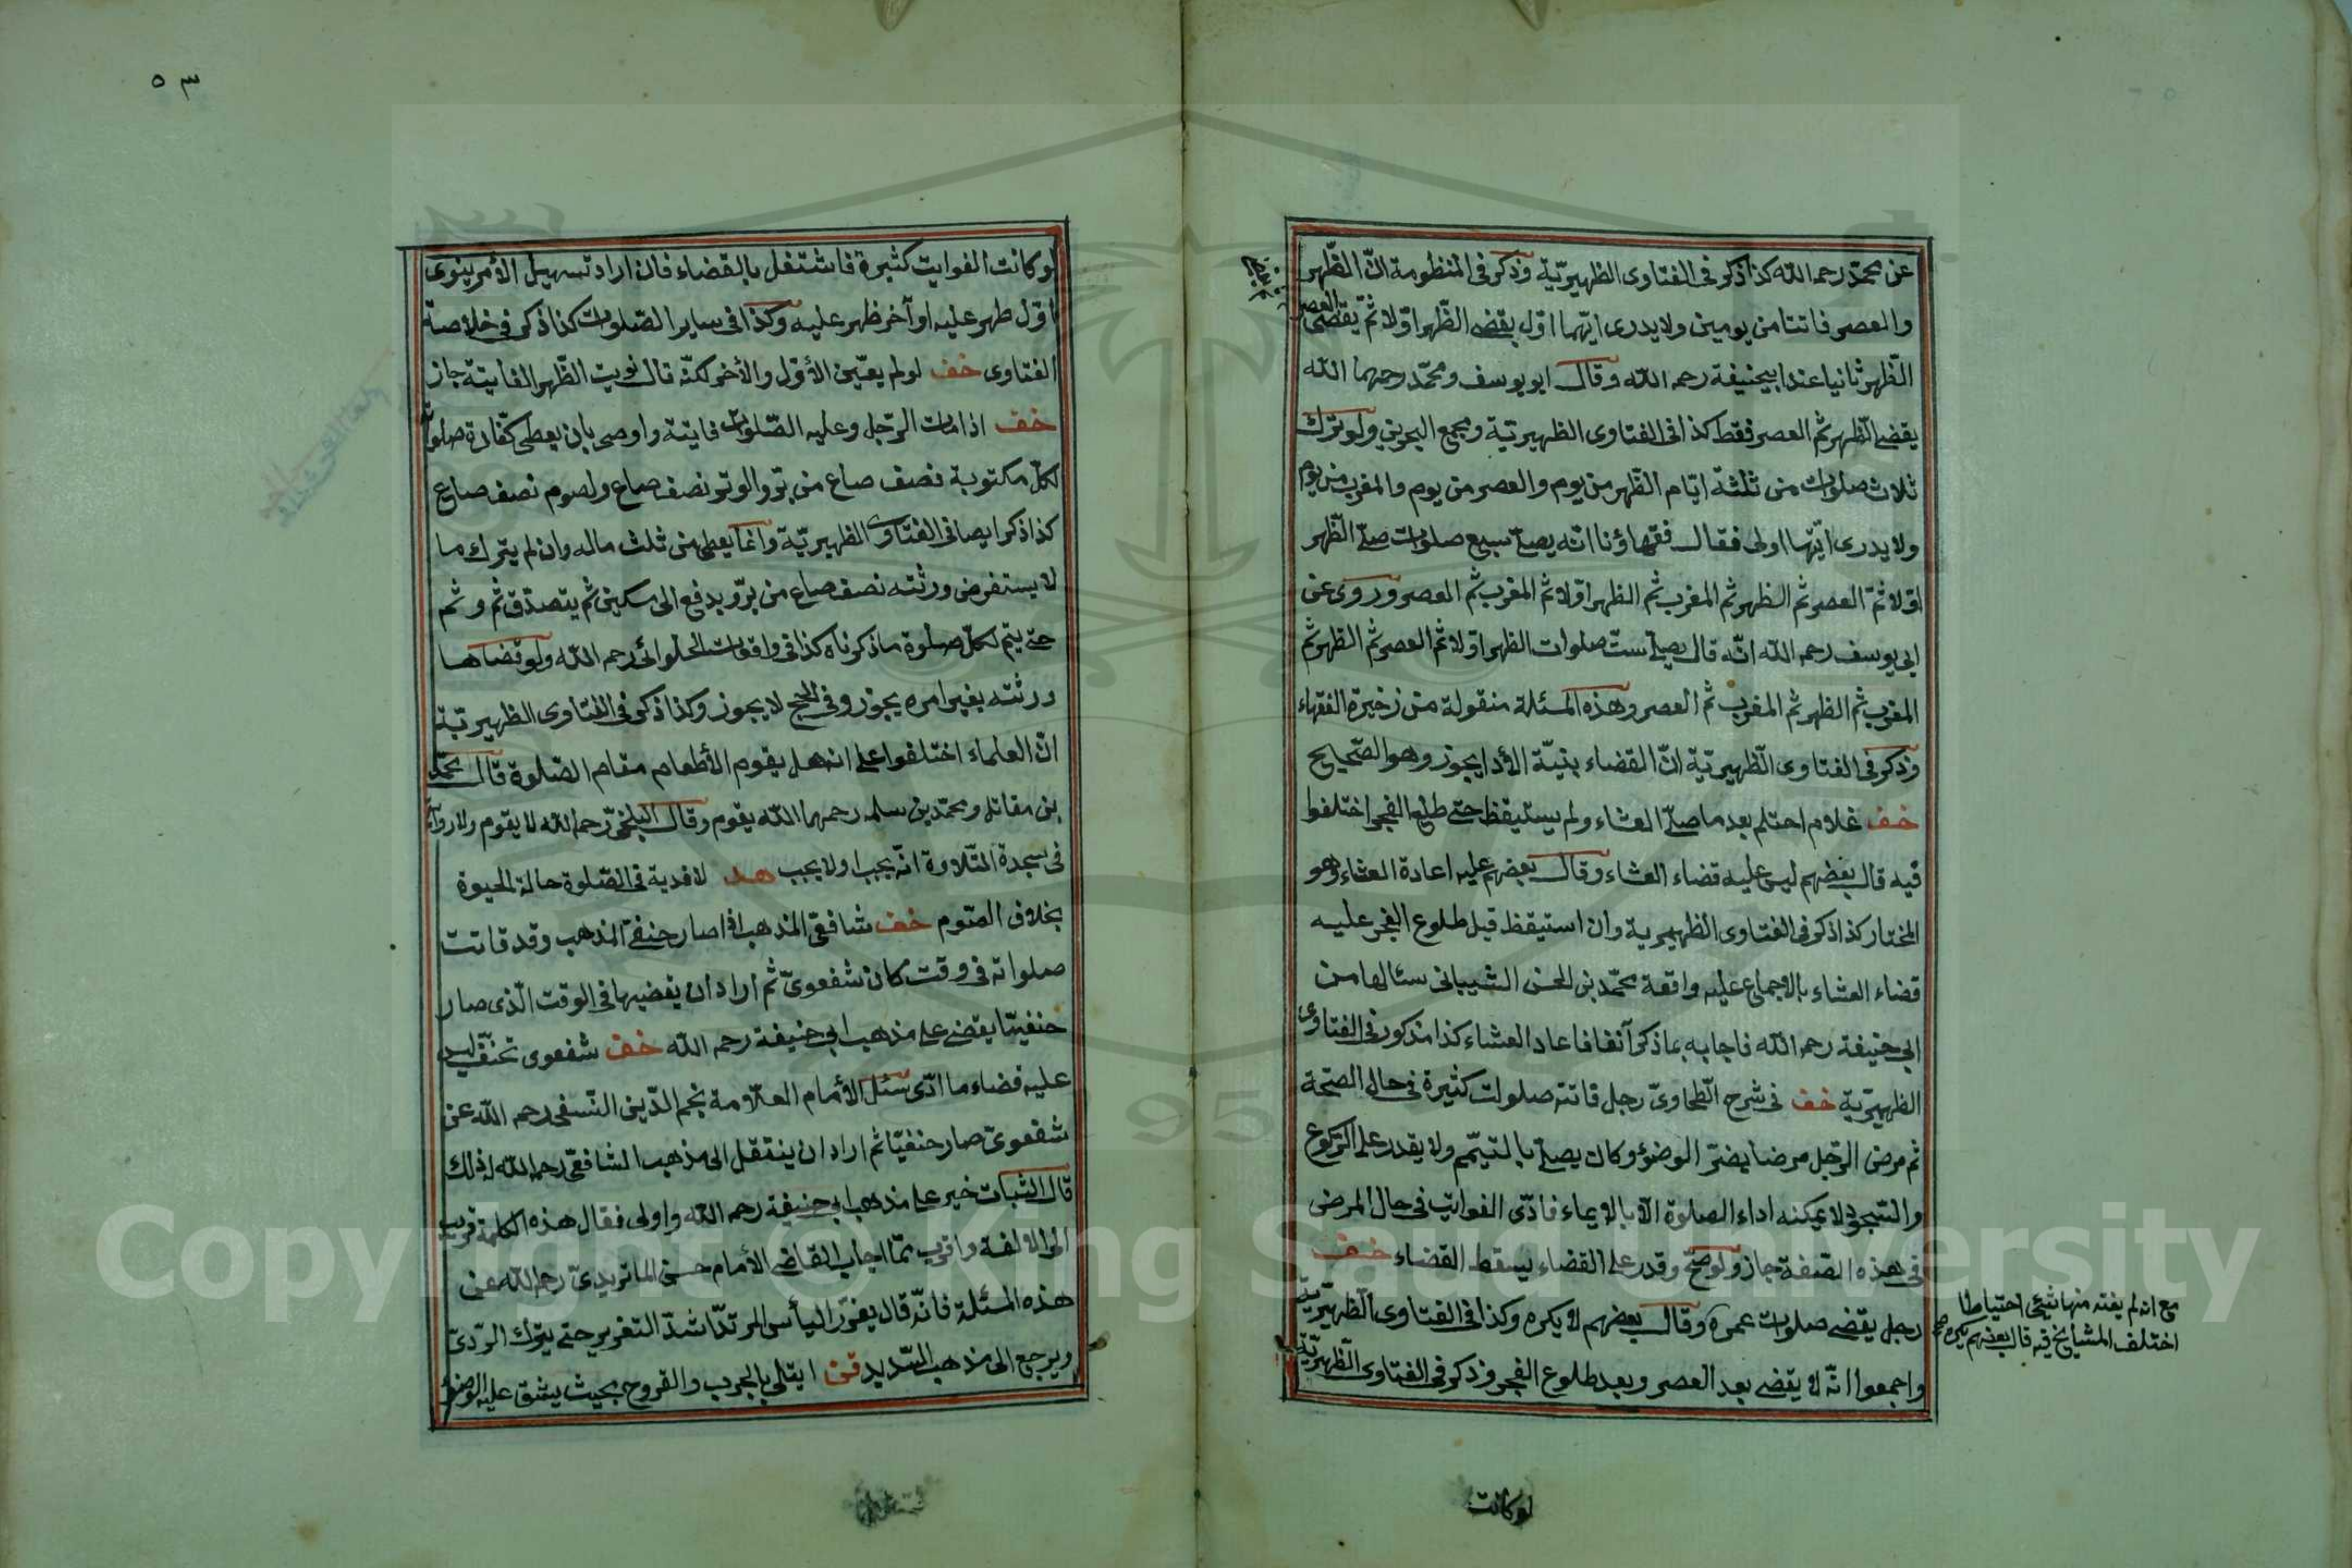 عن محمّد رحمه الله كذا ذكر فى الفتاوى الظهيريّة وذكر فى المنظومة انّ الظّهر
والعصر فاتتا من يومين ولا يدرى ايّهما اوّل يقضى الظّهر اوّلا ثمّ يقضى العصر
الظّهر ثانيا عند ابيحنيفة رحمه الله وقال ابو يوسف ومحمّد رحهما الله
يقضى الظّهر ثم العصر فقط كذا فى الفتاوى الظهيريّة ومجمع البحرين ولو ترك
ثلاث صلوات من ثلثة ايّام الظّهر من يوم والعصر من يوم والمغرب من يوم
ولا يدرى ايّتها اولى فقال فقهاؤنا انّه يصلّى سبع صلوات صلّى الظّهر
اوّلا ثمّ العصر ثم الظهر ثم المغرب ثم الظهر اوّلا ثم المغرب ثم العصر وروى عن
ابى يوسف رحمه الله انّه قال يصلّى ستّ صلوات الظهر اوّلا ثم العصر ثم الظهر ثم
المغرب ثم الظهر ثم المغرب ثم العصر وهذه المسئلة منقولة من زخيرة الفقهاء
وذكر فى الفتاوى الظّهيريّة انّ القضاء بنيّة الأدا يجوز وهو الصّحايح
خف غلام احتلم بعد ما صلّى العشاء ولم يستيقظ حتى طلع الفجر اختلفوا
فيه قال بعضهم ليس عليه قضاء العشاء وقال بعضهم عليه اعادة العشاء وهو
المختار كذا ذكر فى الفتاوى الظهيرية وان استيقظ قبل طلوع الفجر عليه
قضاء العشاء بالاجماع عليه واقعة محمّد بن الحسن الشيبانى سئالها من
ابى حنيفة رحمه الله فاجابه بما ذكر آنفا فاعاد العشاء كذا مذكور فى الفتاوى
الظهيريّة خف فى شرح الطّحاوىّ رجل فاتته صلوات كثيرة فى حال الصحّة
ثم مرض الرّجل مرضا يضرّ الوضوؤ وكان يصلّى بالتيمّم ولا يقدر على الرّكوع
والسّجود لا يمكنه اداء الصلوة الّا بالايماء فادّى الفوايت فى حال المرض
فى هذه الصّفة جاز ولو صحّ وقدر على القضاء يسقط القضاء خف
رجل يقضى صلوات عمره وقال بعضهم لا يكره وكذا فى الفتاوى الظهيريّة
مع انه لم يفته منها شئ احتياطا
اختلف المشايخ فيه قال بعضهم يكره صح
واجمعوا انّه لا يقضى بعد العصر وبعد طلوع الفجر وذكر فى الفتاوى الظّهيريّة
لو كانت
٥٣
لو كانت الفوايت كثيرة فاشتغل بالقضاء فان اراد تسهيل الأمر ينوى
اوّل ظهر عليه او آخر ظهر عليه وكذا فى ساير الصّلوات كذا ذكر فى خلاصة
الفتاوى خف لو لم يعيّن الأوّل والأخر لكنّه قال نويت الظّهر الفايتة جاز
خف اذا مات الرّجل وعليه الصّلوات فايتة واوصى بان يعطى كفّارة صلوته
لكلّ مكتوبة نصف صاع من برّ والوتر نصف صاع ولصوم نصف صاع
كذا ذكر ايضا فى الفتاوى الظهيريّة وانّما يعطى من ثلث ماله وان لم يترك ما
لا يستقرض ورثته نصف صاع من برّ ويدفع الى مسكين ثم يتصدّق ثم وثم
حتى يتم لكلّ صلوة ما ذكرناه كذا فى واقعات الحلوائى رحمه الله ولو قضاها
ورثته بغير امره يجوز وفى الحج لا يجوز وكذا ذكر فى الفتاوى الظهيريّة
انّ العلماء اختلفوا على انه هل يقوم الأطعام مقام الصّلوة قال محمّد
بن مقاتل ومحمّد بن سلمه رحمهما الله يقوم وقال البلخىّ رحمه الله لا يقوم ولا رواية
فى سجدة التّلاوة انّه يجب او لا يجب هد لا فدية فى الصّلوة حالة الحيوة
بخلاف الصّوم خف شافعىّ المذهب اذا صار حنفىّ المذهب وقد فاتت
صلواته فى وقت كان شفعوىّ ثم اراد ان يقضيها فى الوقت الّذى صار
حنفيّا يقضى على مذهب ابى حنيفة رحمه الله خف شفعوى تحنّف ليس
عليه قضاء ما ادّى سئل الأمام العلّامة نجم الدّين النّسفى رحمه الله عن
شفعوىّ صار حنفيّا ثم اراد ان ينتقل الى مذهب الشافعىّ رحمه الله اذلك
قال الثبات خير على مذهب ابى حنيفة رحمه الله واولى فقال هذه الكلمة قريب
الى الالفة واقرب ممّا اجاب القاضى الأمام حسن الماتريدىّ رحمه الله عن
هذه المسئلة فانّه قال يعزّر اليأس المرتدّ اشدّ التعزير حتى يترك الرّدىّ
ويرجع الى مذهب السّديد قن ابتلى بالجرب والقروح بحيث يشق عليه الوضوء